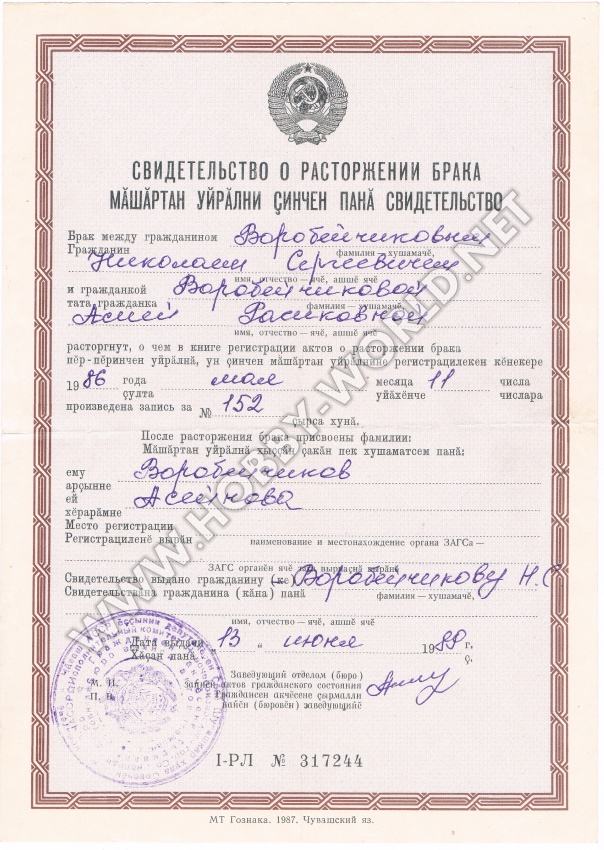 СВИДЕТЕЛЬСТВО О РАСТОРЖЕНИИ БРАКА
МӐШӐРТАН УЙРӐЛНИ ҪИНЧЕН ПАНӐ СВИДЕТЕЛЬСТВО
Брак между гражданином Воробейчиковым
Гражданин фамилия — хушамачĕ,
Николаем Сергеевичем
имя, отчество — ячĕ, ашшĕ ячĕ
и гражданкой Воробейчиковой
тата гражданка фамилия — хушамачĕ,
Асией Расиховной
имя, отчество — ячĕ, ашшĕ ячĕ
расторгнут, о чем в книге регистрации актов о расторжении брака
пĕр-пĕринчен уйрăлнă, ун ҫинчен мăшăртан уйрăлнине регистрацилекен кĕнекере
1986 года мая месяца 11 числа
ҫулта уйăхĕнче числара
произведена запись за № 152
ҫырса хунă.
После расторжения брака присвоены фамилии:
Мăшăртан уйрăлнă хыҫҫăн ҫакăн пек хушаматсем панă:
ему Воробейчиков
арҫынне
ей Асейнова
хĕрарăмне
Место регистрации
Регистрациленĕ вырăн наименование и местонахождение органа ЗАГСа —
ЗАГС органĕн ячĕ тата вырнаҫнă вырăнĕ
Свидетельство выдано гражданину (-ке) Воробейчикову Н. С
Свидетельствăна гражданина (кăна) панă фамилия — хушамачĕ,
имя, отчество — ячĕ, ашшĕ ячĕ
Дата выдачи „ 13 “ июня 1989 г.
Хăҫан панă ҫ.
Заведующий отделом (бюро)
М. П. записи актов гражданского состояния
П. В. Граждансен акчĕсене ҫырмалли
пайĕн (бюровĕн) заведующийĕ
I-РЛ № 317244
МТ Гознака. 1987. Чувашский яз.
WWW.HOBBY-WORLD.NET